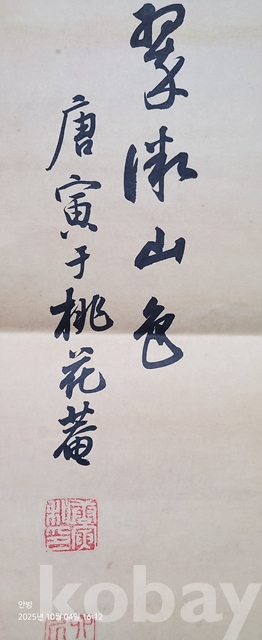 翠微山色
唐寅于桃花菴
안방
2025년 10월 04일 16:12
kobay